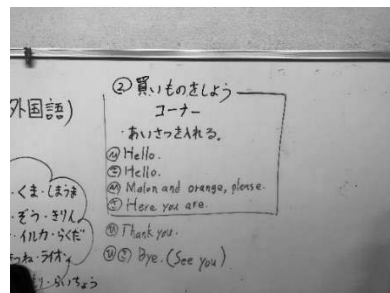 外国語)
・くま・しまうま
・ぞう・きりん
・イルカ・らくだ
つね・ライオン
らいちょう
② 買いものをしよう
コーナー
・あいさつを入れる。
Hello.
Hello.
Melon and orange, please.
Here you are.
Thank you.
Bye. (See you)